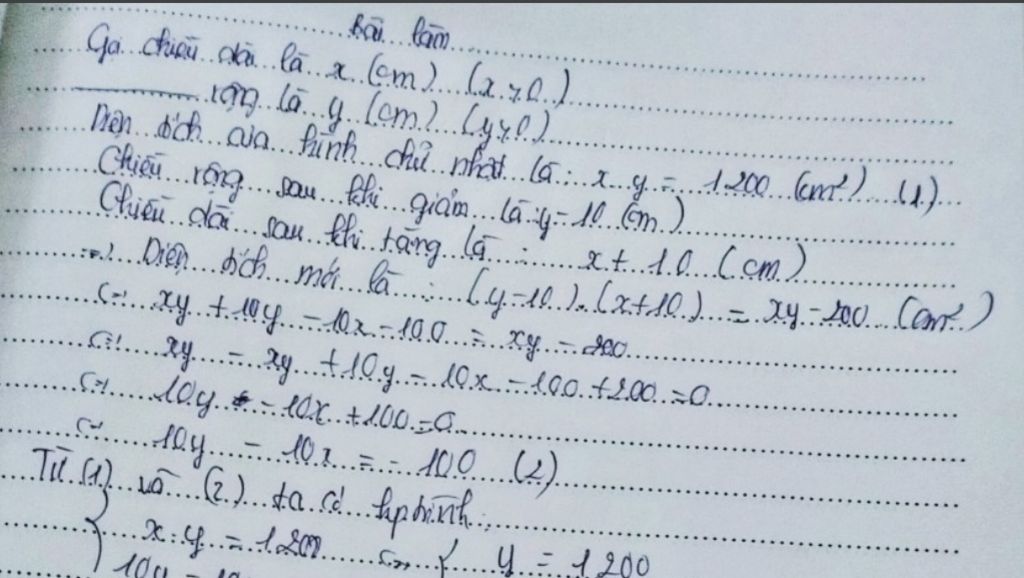 Bài làm
Gọi chiều dài là x (cm) (x > 0)
rộng là y (cm) (y > 0)
Diện tích của hình chữ nhật là: x y = 1200 (cm²) (1)
Chiều rộng sau khi giảm là: y - 10 (cm)
Chiều dài sau khi tăng là: x + 10 (cm)
=> Diện tích mới là: (y-10).(x+10) = xy - 200 (cm²)
<=> xy + 10y - 10x - 100 = xy - 200
<=> xy - xy + 10y - 10x - 100 + 200 = 0
<=> 10y - 10x + 100 = 0
<=> 10y - 10x = - 100 (2)
Từ (1) và (2) ta có hptrình:
{ x.y = 1200 <=> { y = 1200
10y - 10